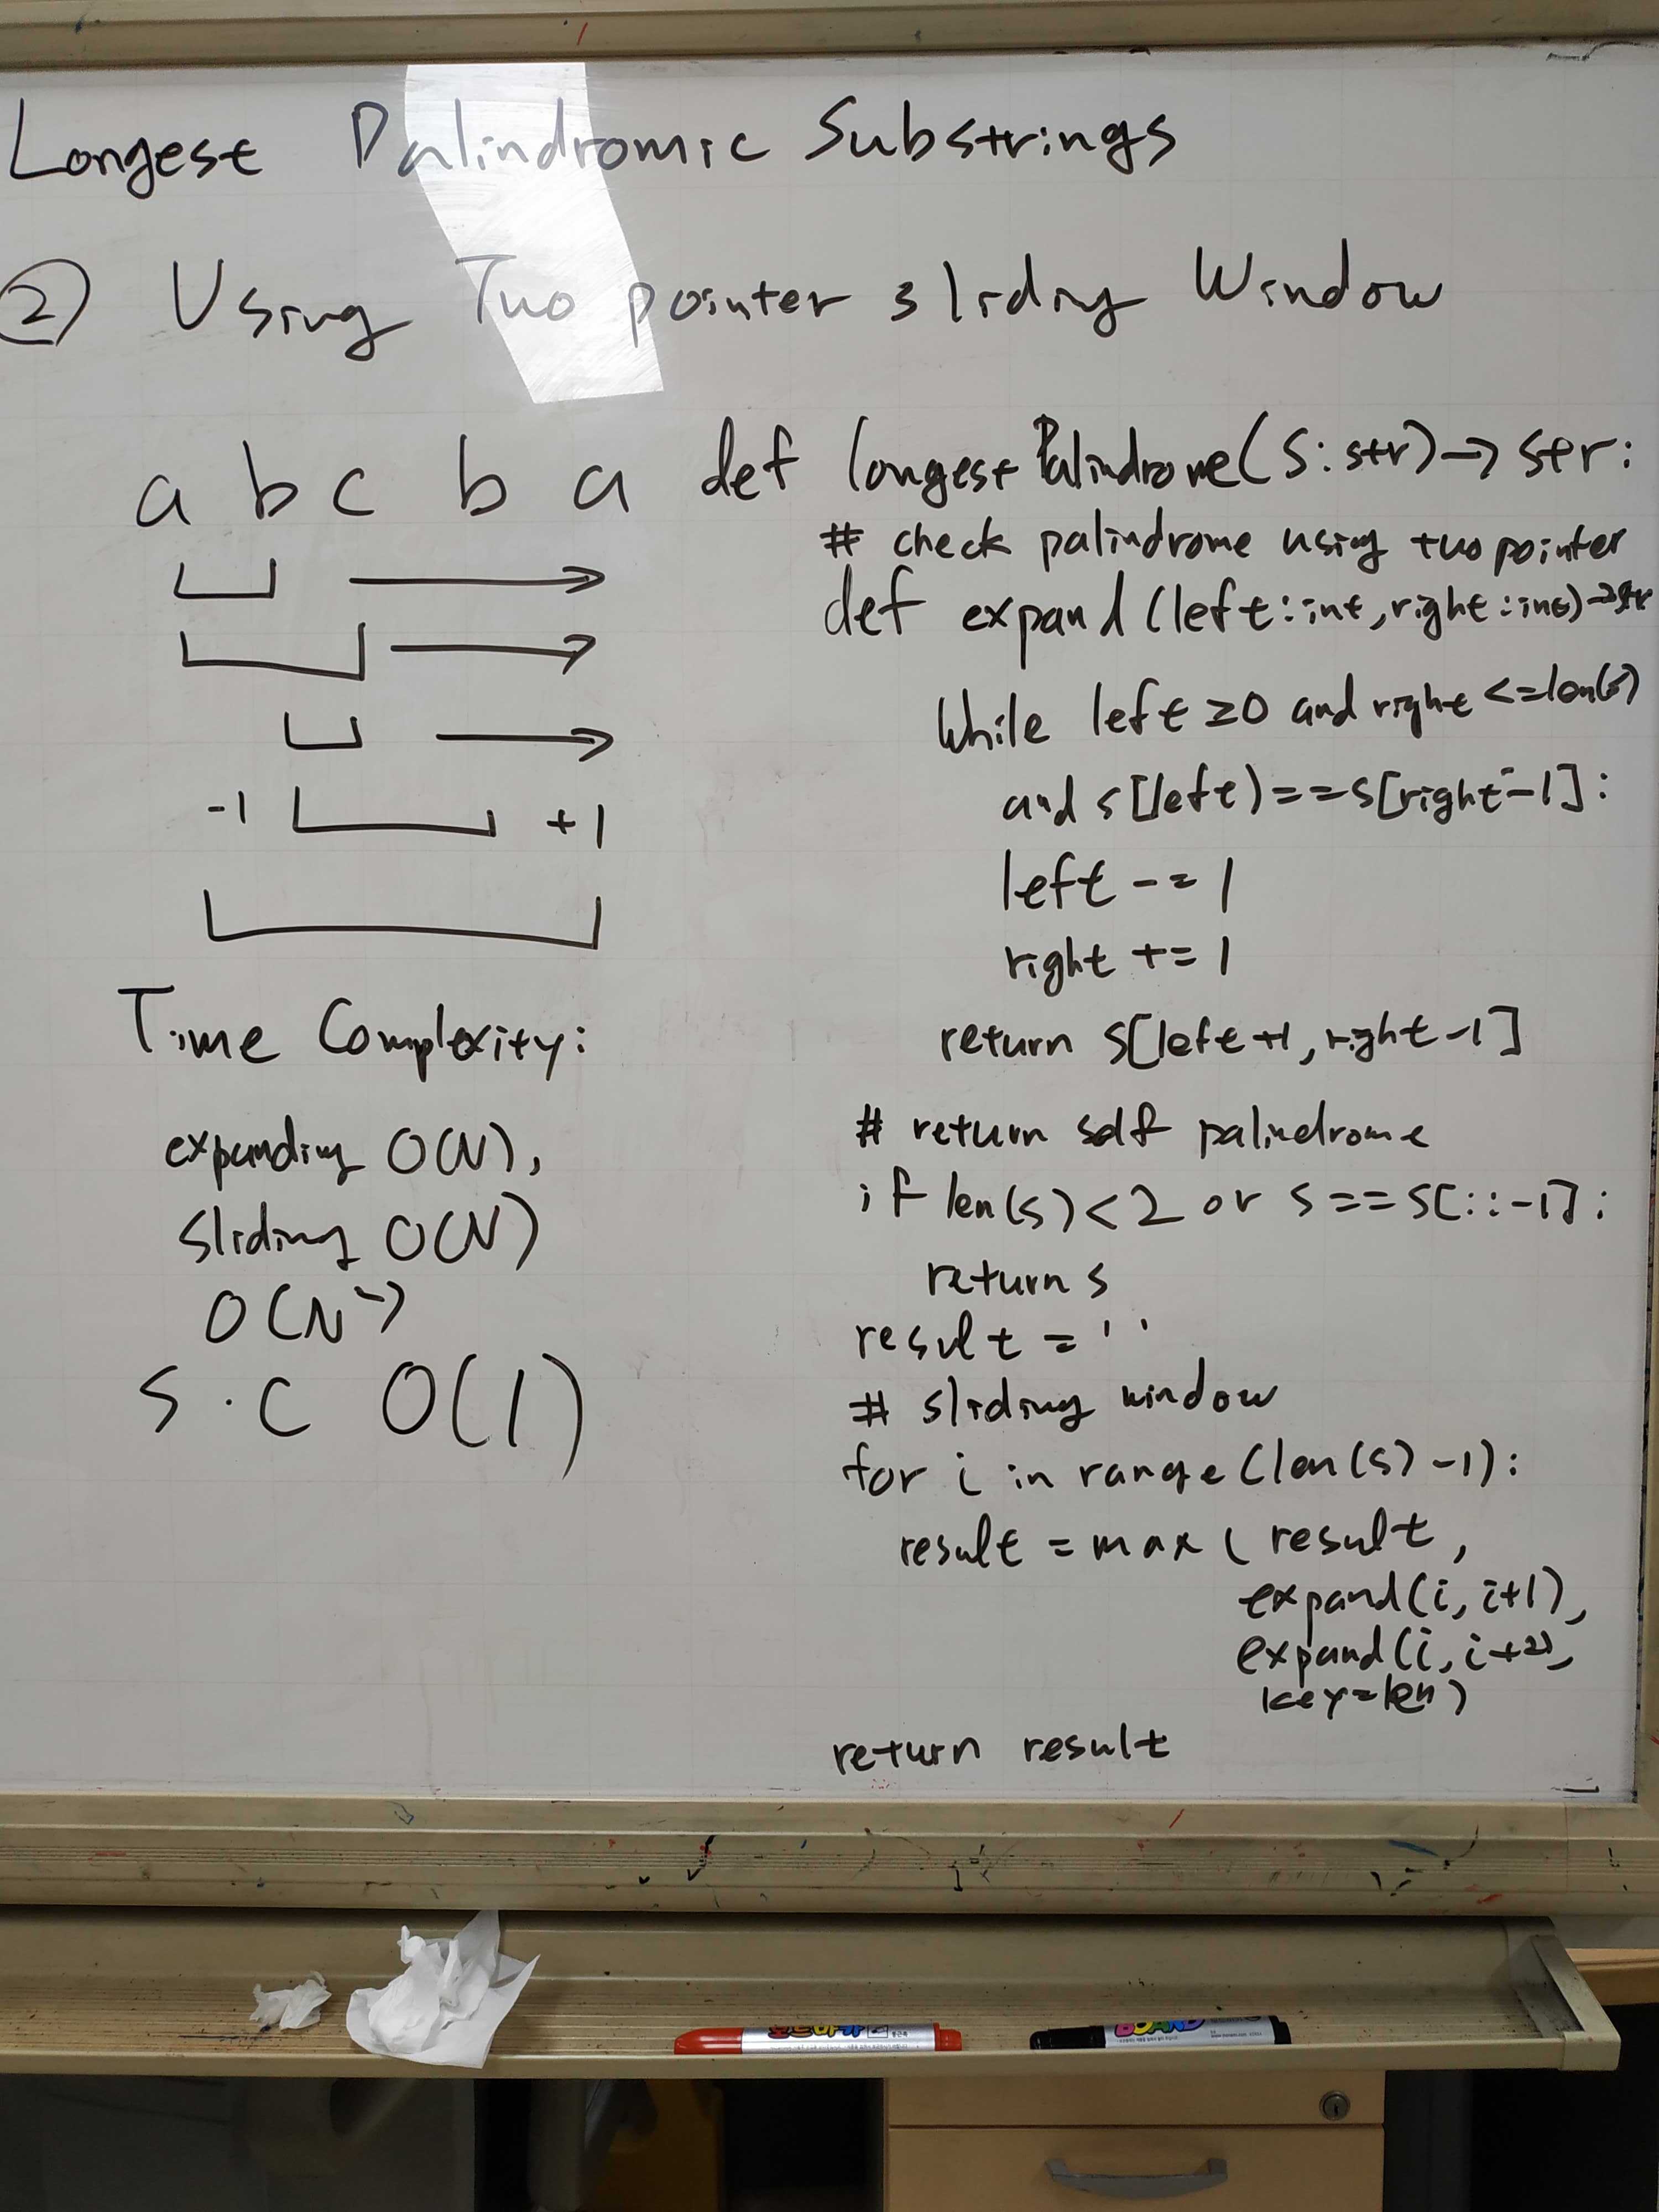 Longest Palindromic Substrings
② Using Two pointer sliding Window
a b c b a
-1 +1
Time Complexity:
expanding O(N),
sliding O(N)
O(N²)
S.C O(1)
def longestPalindrome(s:str)->str:
# check palindrome using two pointer
def expand(left:int,right:int)->str
while left ≥0 and right <=len(s)
and s[left)==s[right-1]:
left -= 1
right += 1
return s[left+1,right-1]
# return self palindrome
if len(s)<2 or s==s[::-1]:
return s
result = ' '
# sliding window
for i in range(len(s)-1):
result = max( result,
expand(i, i+1),
expand(i, i+2),
key=len)
return result
보드마카
BOARD